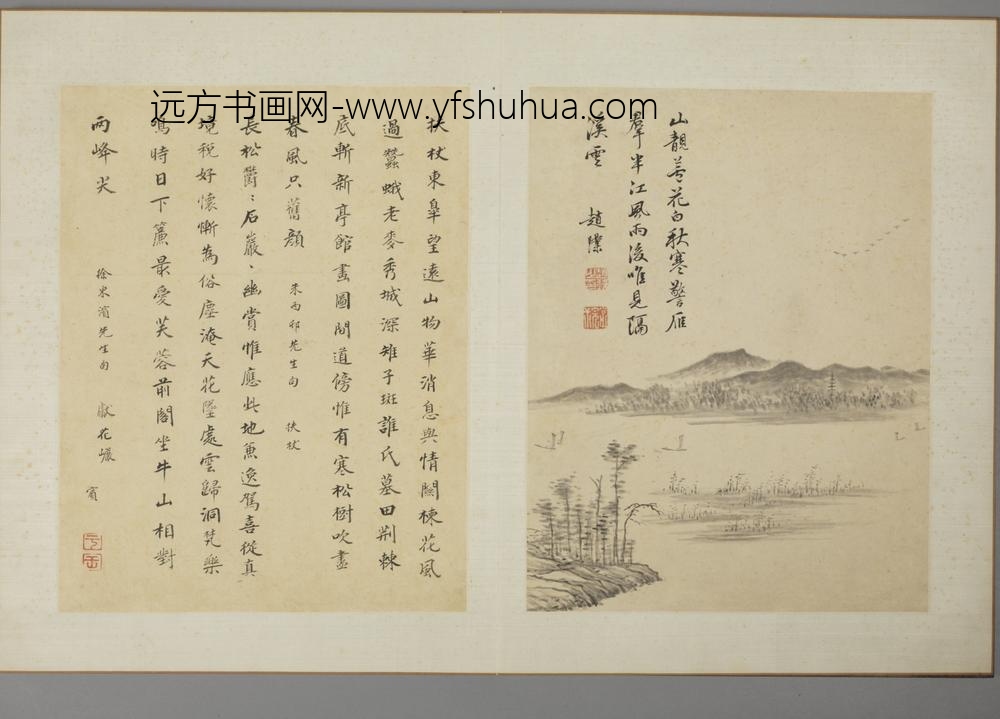 远方书画网-www.yfshuhua.com
山靚蓼花白秋寒警雁
羣半江風雨後唯見隔
溪雲 趙㵐
扶杖東皐望遠山物華消息與情關楝花風
過蠶蛾老麥秀城深雉子斑誰氏墓田荆棘
底斬新亭館畫圖間道傍惟有寒松樹吹盡
春風只舊顔 朱雨邨先生句 扶杖
長松欝〻石巖〻幽賞惟應此地兼逸駕喜從真
境稅好懷慚為俗塵淹天花墜處雲歸洞梵樂
鳴時日下簾最愛芙蓉前閣坐牛山相對
兩峰尖 徐米濱先生句 獻花巖
賓